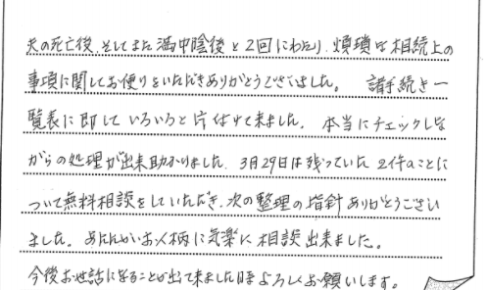 夫の死亡後、そしてまた満中陰後と2回にわたり、煩瑣な相続上の
事項に関してお便りをいただきありがとうございました。 諸手続き一
覧表に即していろいろと片付けて来ました。本当にチェックしな
がらの処理が出来助かりました。3月29日は残っていた2件のことに
ついて無料相談をしていただき、次の整理の指針ありがとうござい
ました。あたたかいお人柄に気楽に相談出来ました。
今後お世話になることが出て来ました時よろしくお願いします。